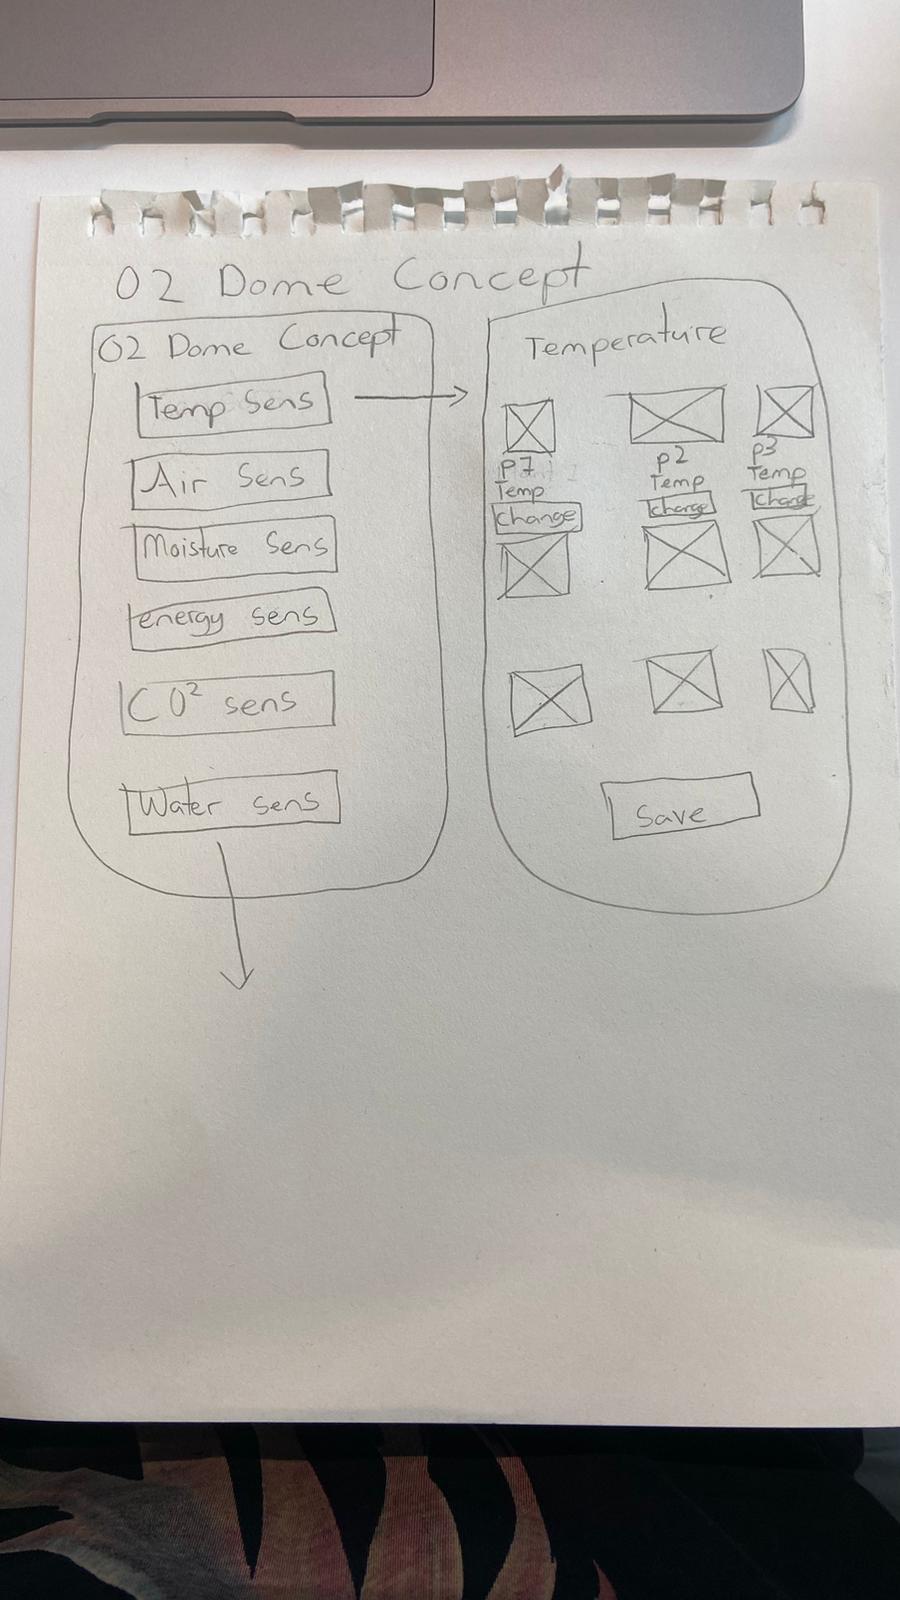 O2 Dome Concept
O2 Dome Concept
Temp Sens
Air Sens
Moisture Sens
energy sens
CO² sens
Water sens
Temperature
P7
Temp
Change
P2
Temp
Change
P3
Temp
Change
Save